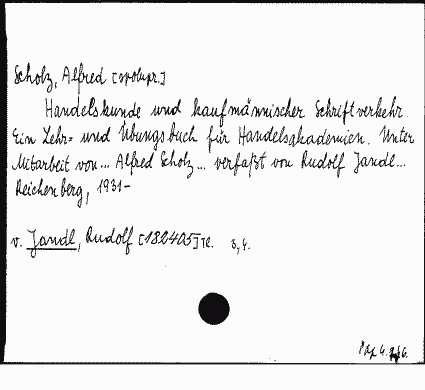 Scholz, Alfred [spolupr.]
Handelskunde und kaufmännischer Schriftverkehr.
Ein Lehr= und Übungsbuch für Handelsakademien. Unter
Mitarbeit von... Alfred Scholz... verfaßt von Rudolf Jandl...
Reichenberg, 1931-
v. Jandl, Rudolf [182405] Te. 3,4.